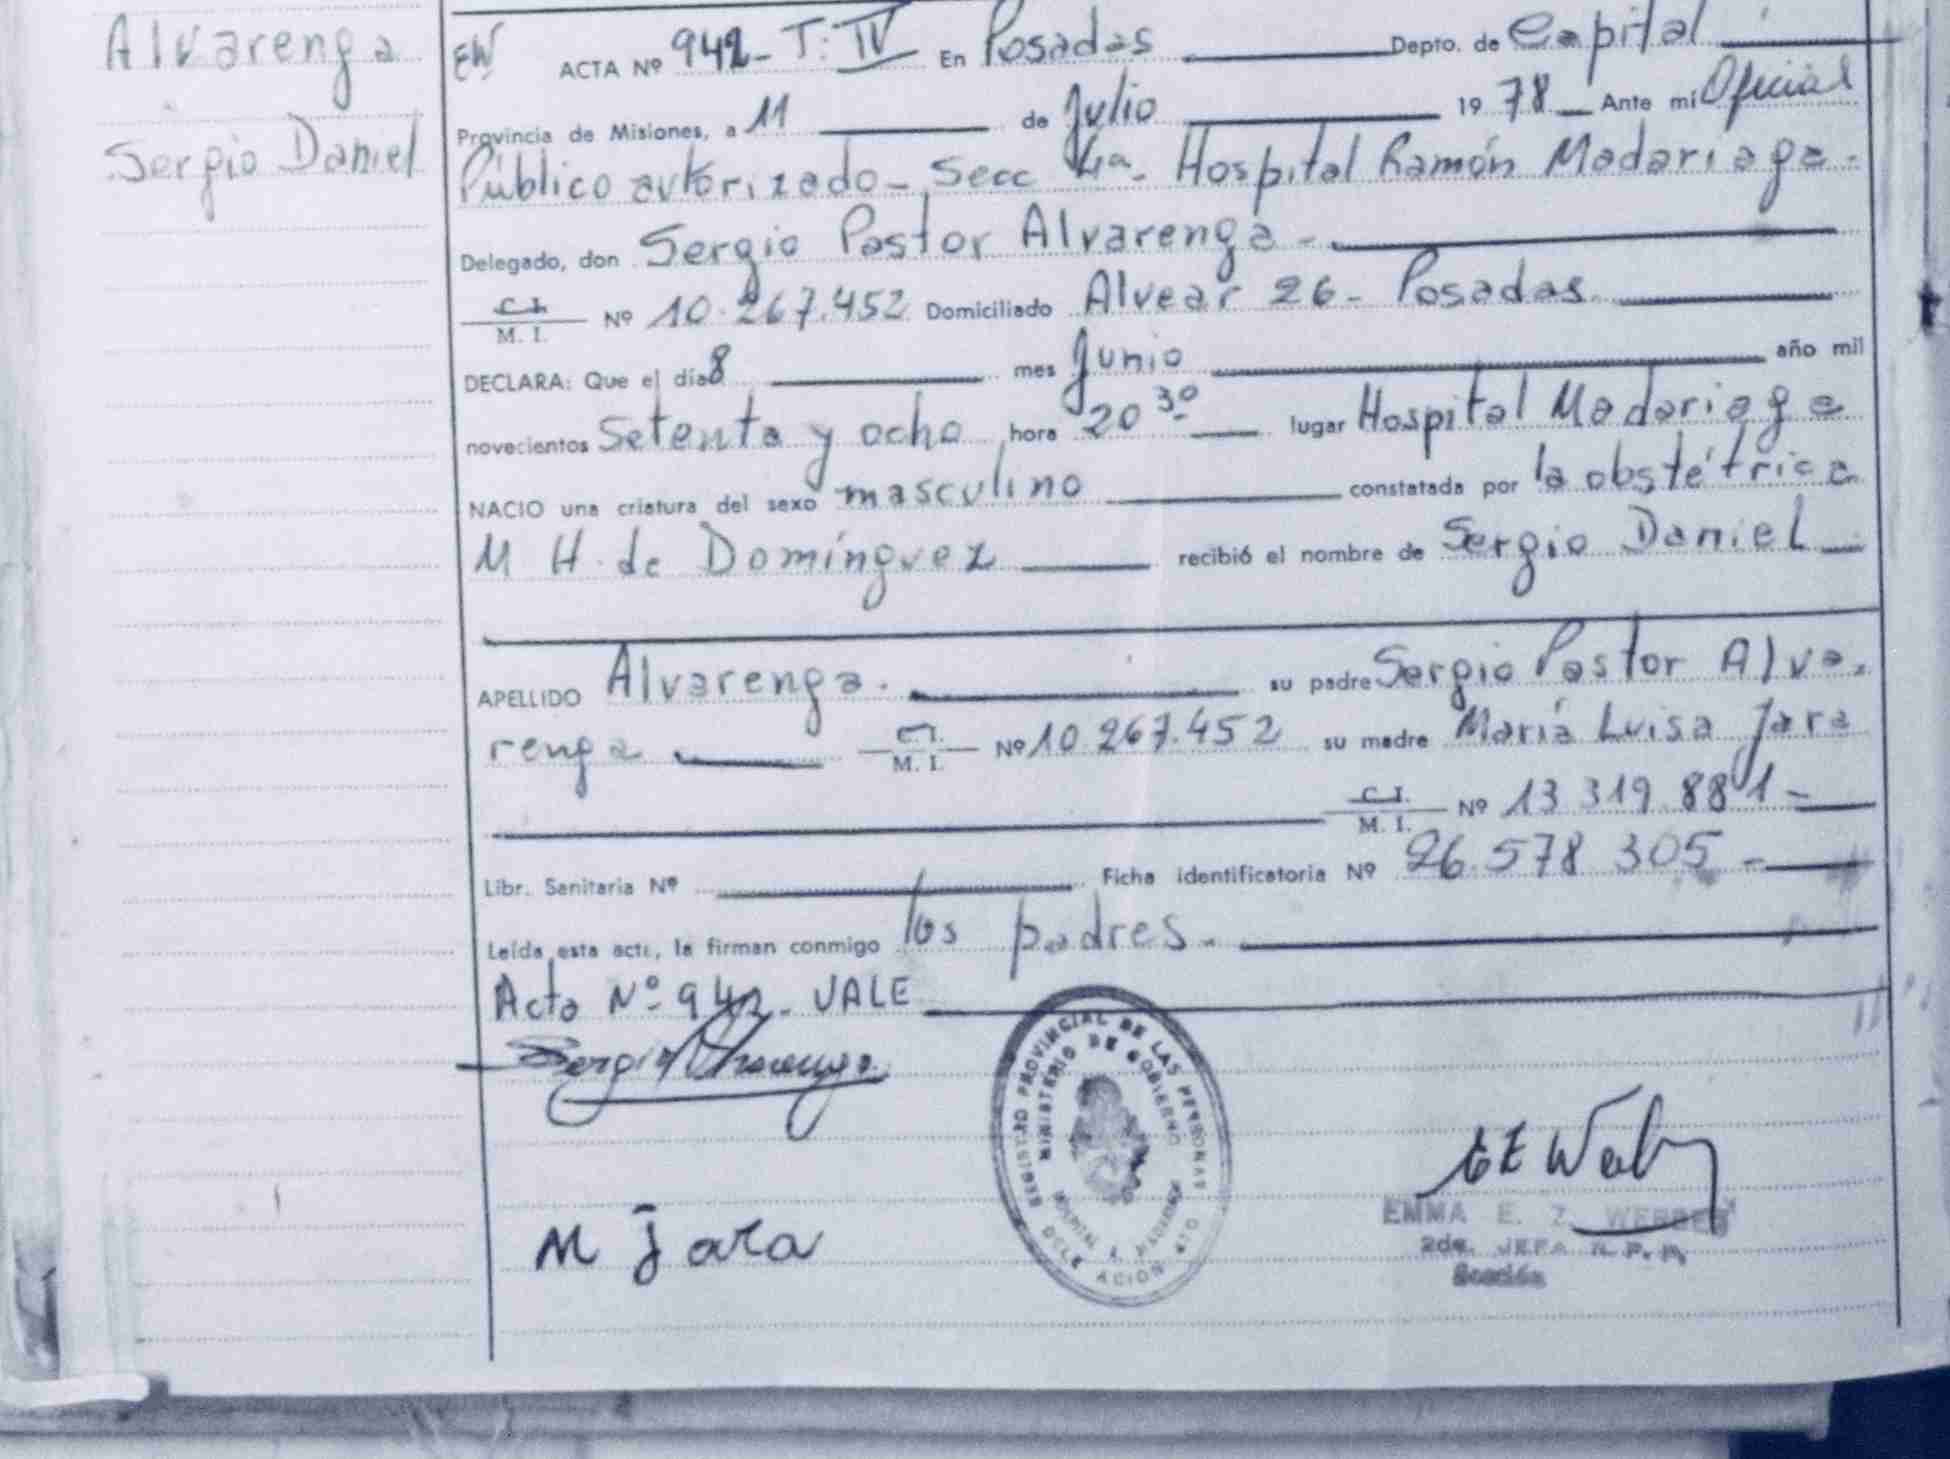 Alvarenga
Sergio Daniel
EW ACTA Nº 942- T: IV En Posadas Depto. de Capital
Provincia de Misiones, a 11 de Julio 19 78 Ante mí Oficial
Público autorizado- Secc 4a. Hospital Ramón Madariaga.
Delegado, don Sergio Pastor Alvarenga -
C. I. M. I. Nº 10.267.452 Domiciliado Alvear 26- Posadas
DECLARA: Que el día 8 mes Junio año mil
novecientos Setenta y ocho hora 20 30 lugar Hospital Madariaga
NACIO una criatura del sexo masculino constatada por la obstétrica
M H. de Domínguez recibió el nombre de Sergio Daniel
APELLIDO Alvarenga. su padre Sergio Pastor Alva-
renga C. I. M. I. Nº 10.267.452 su madre María Luisa Jara
C. I. M. I. Nº 13 319.881 -
Libr. Sanitaria Nº Ficha identificatoria Nº 26.578 305 -
Leída esta acta, la firman conmigo los padres.
Acta Nº 942. VALE
Sergio Alvarenga
REGISTRO PROVINCIAL DE LAS PERSONAS
MINISTERIO DE GOBIERNO
HOSPITAL R. MADARIAGA
DELEGACION
M Jara
E E Weber
EMMA E. Z. WEBBER
2da. JEFA R. P. P.
Sección